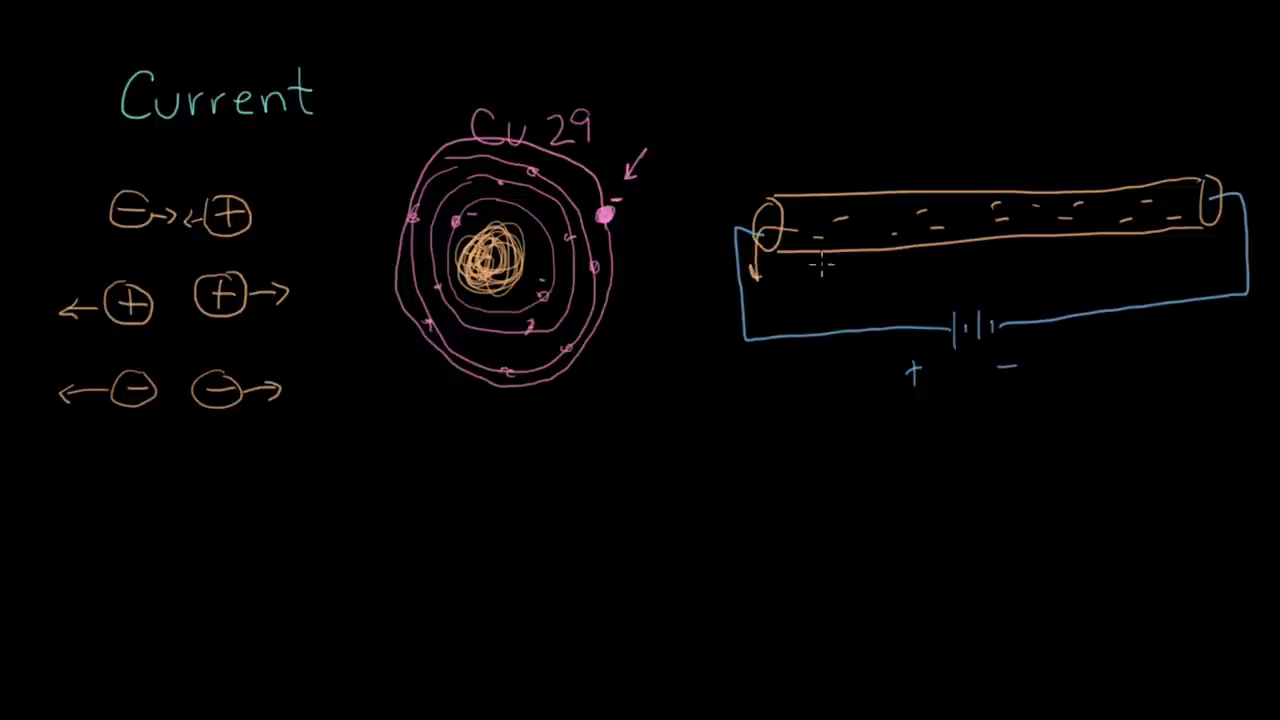 Current
Cu 29
- +
+ +
- -
+ -